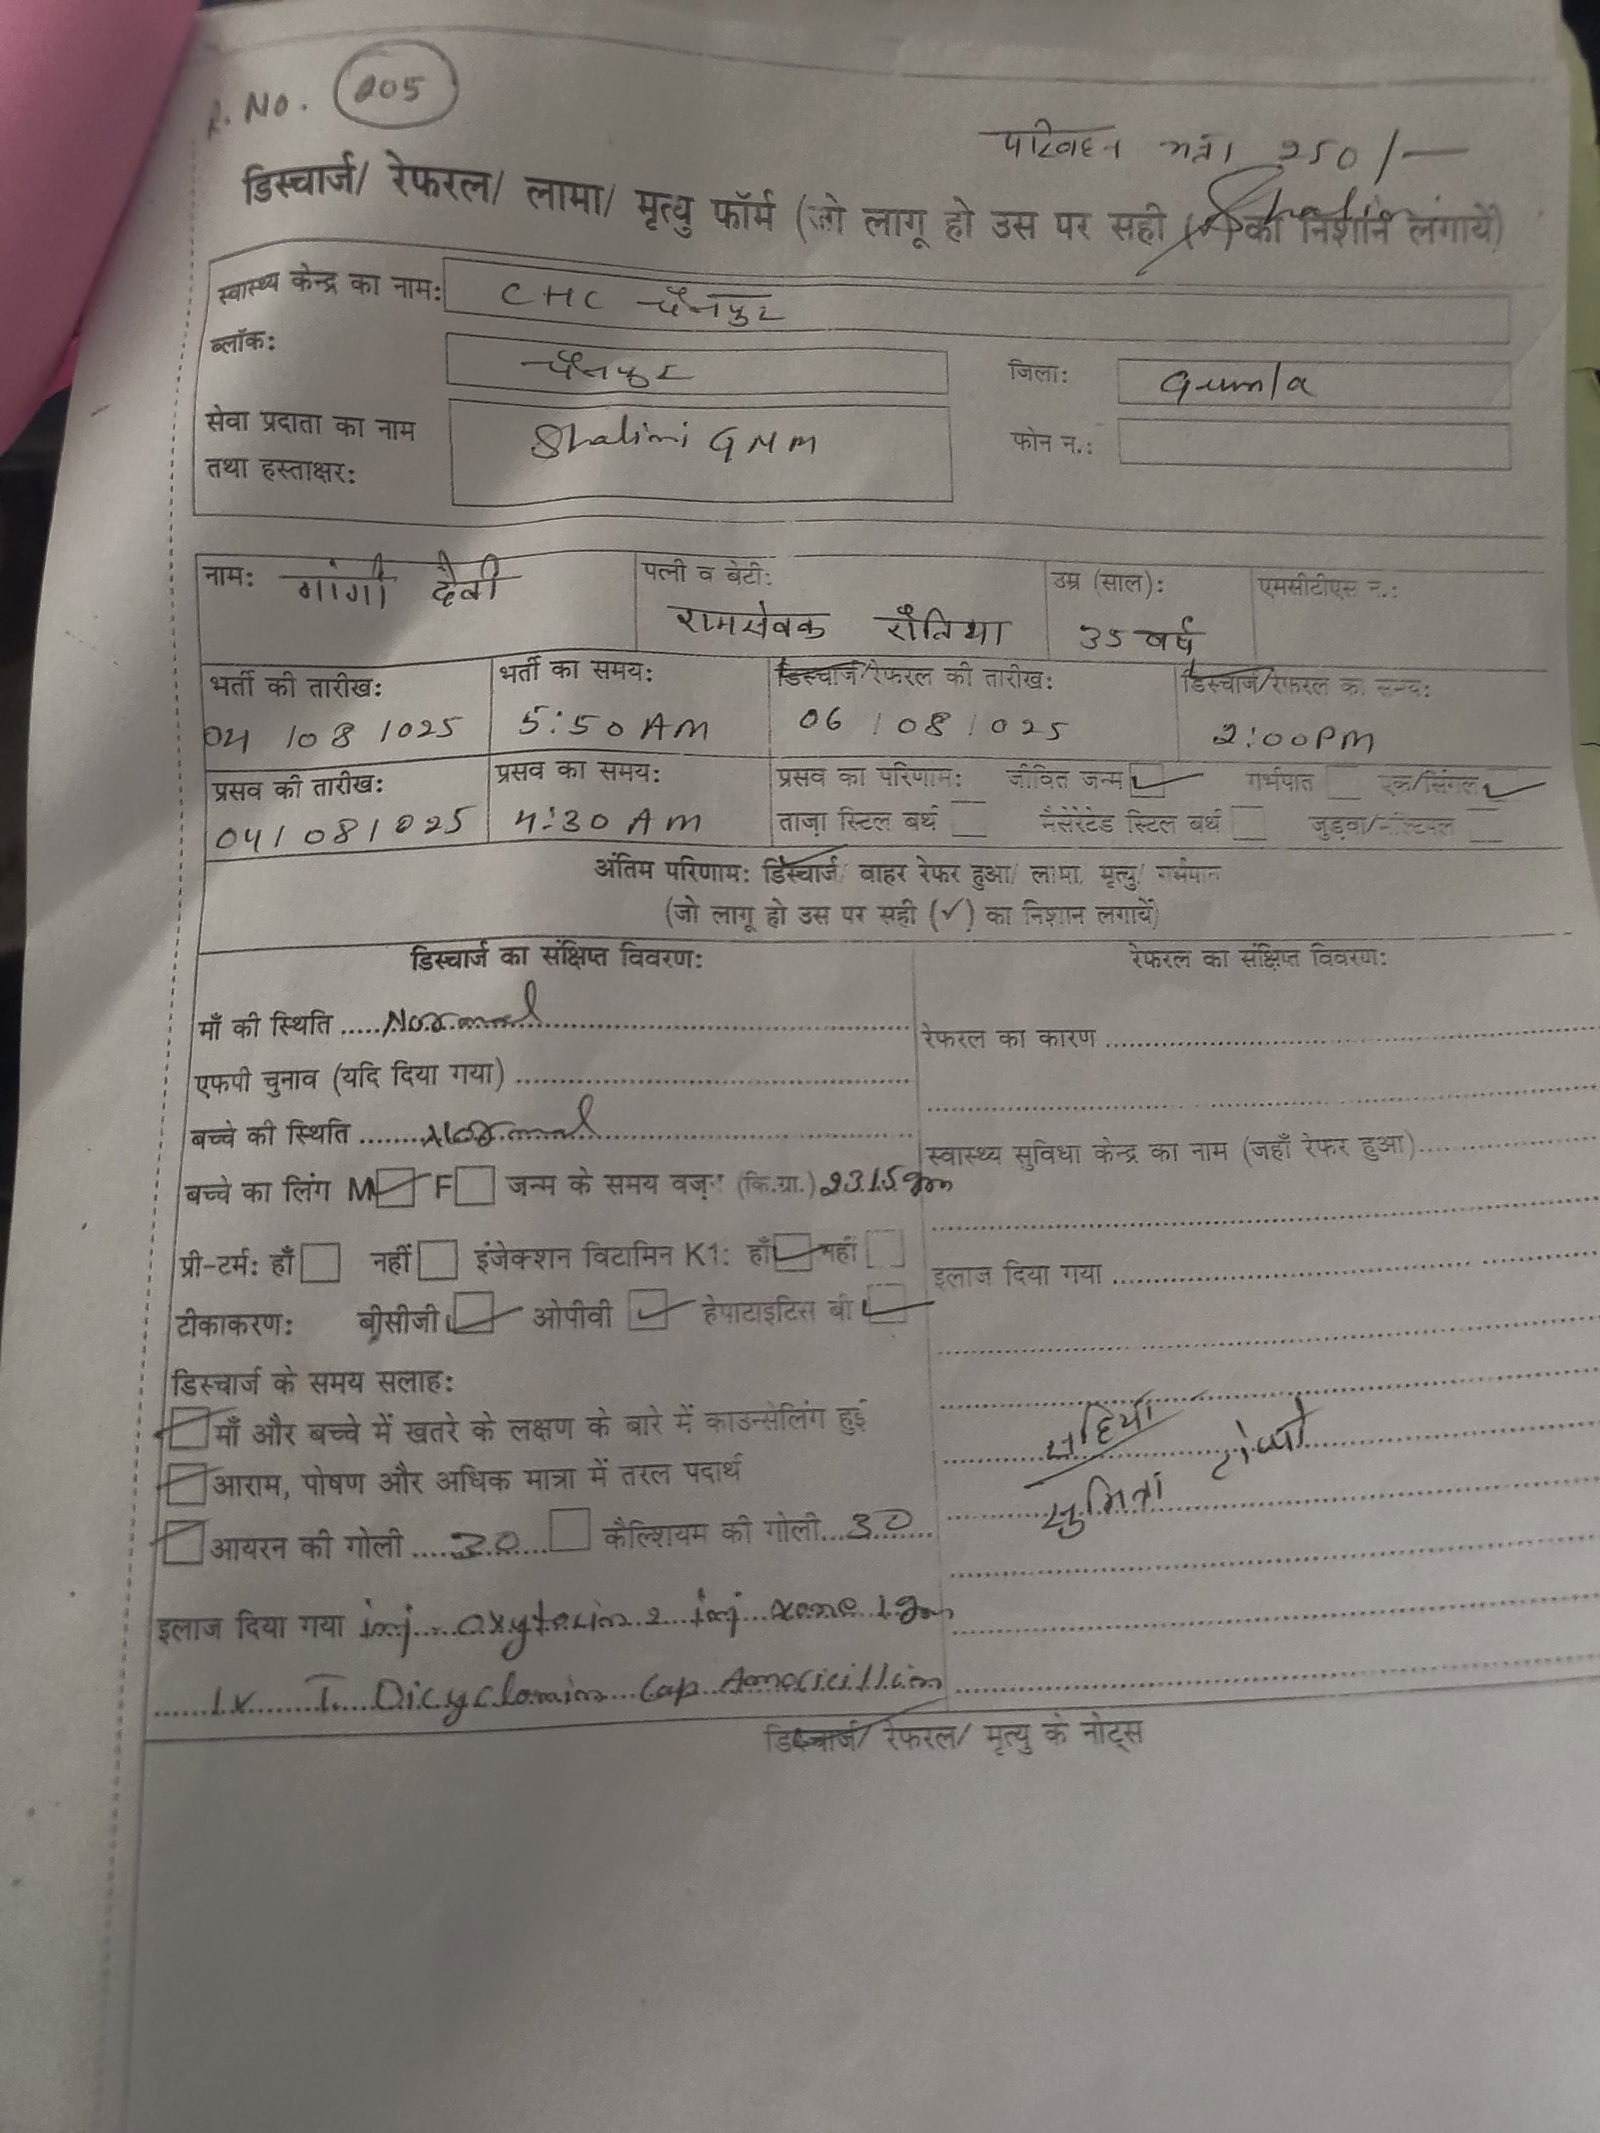 R. No. 205
परिवहन भत्ता 250/-
डिस्चार्ज/ रेफरल/ लामा/ मृत्यु फॉर्म (जो लागू हो उस पर सही (✓) का निशान लगायें)
स्वास्थ्य केन्द्र का नाम: CHC चैनपुर
ब्लॉक: चैनपुर जिला: Gumla
सेवा प्रदाता का नाम Shalini GNM फोन न.:
तथा हस्ताक्षर:
नाम: गांगी देवी पत्नी व बेटी: उम्र (साल): एमसीटीएस न.:
रामसेवक रौतिया 35 वर्ष
भर्ती की तारीख: भर्ती का समय: डिस्चार्ज/रेफरल की तारीख: डिस्चार्ज/रेफरल का समय:
04/08/025 5:50 AM 06/08/025 2:00PM
प्रसव की तारीख: प्रसव का समय: प्रसव का परिणाम: जीवित जन्म ✓ गर्भपात एक/सिंगल ✓
04/08/025 4:30 AM ताज़ा स्टिल बर्थ मैसेरेटेड स्टिल बर्थ जुड़वा/मल्टिपल
अंतिम परिणाम: डिस्चार्ज/ बाहर रेफर हुआ/ लामा/ मृत्यु/ गर्भपात
(जो लागू हो उस पर सही (✓) का निशान लगायें)
डिस्चार्ज का संक्षिप्त विवरण: रेफरल का संक्षिप्त विवरण:
माँ की स्थिति ..... Normal रेफरल का कारण
एफपी चुनाव (यदि दिया गया)
बच्चे की स्थिति ....... Normal स्वास्थ्य सुविधा केन्द्र का नाम (जहाँ रेफर हुआ)
बच्चे का लिंग M ✓ F जन्म के समय वज़न (कि.ग्रा.) 2315 gm
प्री-टर्म: हाँ नहीं इंजेक्शन विटामिन K1: हाँ ✓ नहीं इलाज दिया गया
टीकाकरण: बीसीजी ✓ ओपीवी ✓ हेपाटाइटिस बी ✓
डिस्चार्ज के समय सलाह:
माँ और बच्चे में खतरे के लक्षण के बारे में काउन्सेलिंग हुई सहिया
आराम, पोषण और अधिक मात्रा में तरल पदार्थ सुमित्रा टोप्पो
आयरन की गोली ..... 30 ..... कैल्शियम की गोली ... 30
इलाज दिया गया inj oxytocin 2 inj xone 1 gm
I.V T. Dicyclomin Cap Amoxicillin
डिस्चार्ज/ रेफरल/ मृत्यु के नोट्स